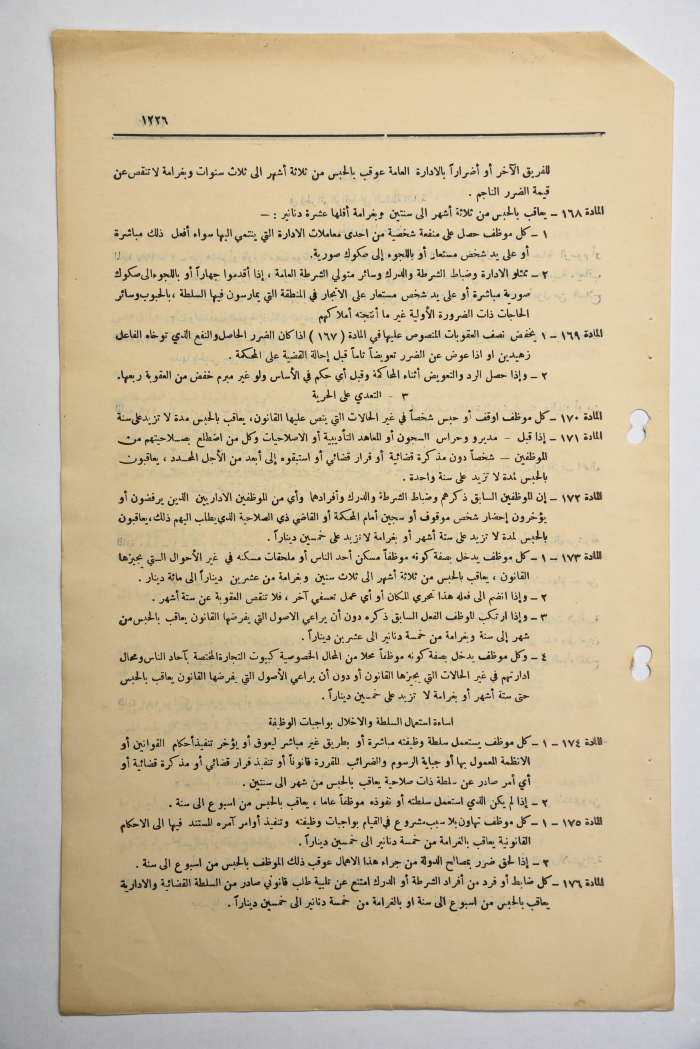 ١٢٢٦
للفريق الآخر أو أضراراً بالادارة العامة عوقب بالحبس من ثلاثة أشهر الى ثلاث سنوات وبغرامة لا تنقص عن
قيمة الضرر الناجم .
المادة ١٦٨ – يعاقب بالحبس من ثلاثة أشهر الى سنتين وبغرامة أقلها عشرة دنانير : —
١ – كل موظف حصل على منفعة شخصية من احدى معاملات الادارة التي ينتمي اليها سواء أفعل ذلك مباشرة
أو على يد شخص مستعار أو باللجوء إلى صكوك صورية .
٢ – ممثلو الادارة وضباط الشرطة والدرك وسائر متولي الشرطة العامة ، إذا أقدموا جهاراً أو باللجوء الى صكوك
صورية مباشرة أو على يد شخص مستعار على الاتجار في المنطقة التي يمارسون فيها السلطة ، بالحبوب وسائر
الحاجات ذات الضرورة الأولية غير ما أنتجته أملاكهم
المادة ١٦٩ – ١ يخفض نصف العقوبات المنصوص عليها في المادة ( ١٦٧ ) اذا كان الضرر الحاصل والنفع الذي توخاه الفاعل
زهيدين او اذا عوض عن الضرر تعويضاً تاماً قبل إحالة القضية على المحكمة .
٢ – وإذا حصل الرد والتعويض أثناء المحاكمة وقبل أي حكم في الأساس ولو غير مبرم خفض من العقوبة ربعها .
٣ – التعدي على الحرية
المادة ١٧٠ – كل موظف اوقف أو حبس شخصاً في غير الحالات التي ينص عليها القانون ، يعاقب بالحبس مدة لا تزيد على سنة
المادة ١٧١ – إذا قبل – مديرو وحراس السجون أو المعاهد التأديبية أو الاصلاحيات وكل من اضطلع بصلاحيتهم من
الموظفين – شخصاً دون مذكرة قضائية أو قرار قضائي أو استبقوه إلى أبعد من الأجل المحدد ، يعاقبون
بالحبس لمدة لا تزيد على سنة واحدة .
المادة ١٧٢ – إن الموظفين السابق ذكرهم وضباط الشرطة والدرك وأفرادهما وأي من الموظفين الاداريين الذين يرفضون أو
يؤخرون إحضار شخص موقوف أو سجين أمام المحكمة أو القاضي ذي الصلاحية الذي يطلب اليهم ذلك ، يعاقبون
بالحبس لمدة لا تزيد على ستة أشهر أو بغرامة لا تزيد على خمسين ديناراً .
المادة ١٧٣ – ١ – كل موظف يدخل بصفة كونه موظفاً مسكن أحد الناس أو ملحقات مسكنه في غير الأحوال التي يجيزها
القانون ، يعاقب بالحبس من ثلاثة أشهر الى ثلاث سنين وبغرامة من عشرين ديناراً الى مائة دينار .
٢ – وإذا انضم الى فعله هذا تحري المكان أو أي عمل تعسفي آخر ، فلا تنقص العقوبة عن ستة أشهر .
٣ – وإذا ارتكب الموظف الفعل السابق ذكره دون أن يراعي الاصول التي يفرضها القانون يعاقب بالحبس من
شهر إلى سنة وبغرامة من خمسة دنانير الى عشرين ديناراً .
٤ – وكل موظف يدخل بصفة كونه موظفاً محلا من المحال الخصوصية كبيوت التجارة المختصة بآحاد الناس ومحال
ادارتهم في غير الحالات التي يجيزها القانون أو دون أن يراعي الأصول التي يفرضها القانون يعاقب بالحبس
حتى ستة أشهر أو بغرامة لا تزيد على خمسين ديناراً .
اساءة استعمال السلطة والاخلال بواجبات الوظيفة
المادة ١٧٤ – ١ – كل موظف يستعمل سلطة وظيفته مباشرة أو بطريق غير مباشر ليعوق أو يؤخر تنفيذ أحكام القوانين أو
الانظمة المعمول بها أو جباية الرسوم والضرائب المقررة قانوناً أو تنفيذ قرار قضائي أو مذكرة قضائية أو
أي أمر صادر عن سلطة ذات صلاحية يعاقب بالحبس من شهر الى سنتين .
٢ – إذا لم يكن الذي استعمل سلطته أو نفوذه موظفاً عاما ، يعاقب بالحبس من اسبوع الى سنة .
المادة ١٧٥ – ١ – كل موظف تهاون بلا سبب مشروع في القيام بواجبات وظيفته وتنفيذ أوامر آمره المستند فيها الى الاحكام
القانونية يعاقب بالغرامة من خمسة دنانير الى خمسين ديناراً .
٢ – إذا لحق ضرر بمصالح الدولة من جراء هذا الاهمال عوقب ذلك الموظف بالحبس من اسبوع الى سنة .
المادة ١٧٦ – كل ضابط أو فرد من أفراد الشرطة أو الدرك امتنع عن تلبية طلب قانوني صادر من السلطة القضائية والادارية
يعاقب بالحبس من اسبوع الى سنة او بالغرامة من خمسة دنانير الى خمسين ديناراً .